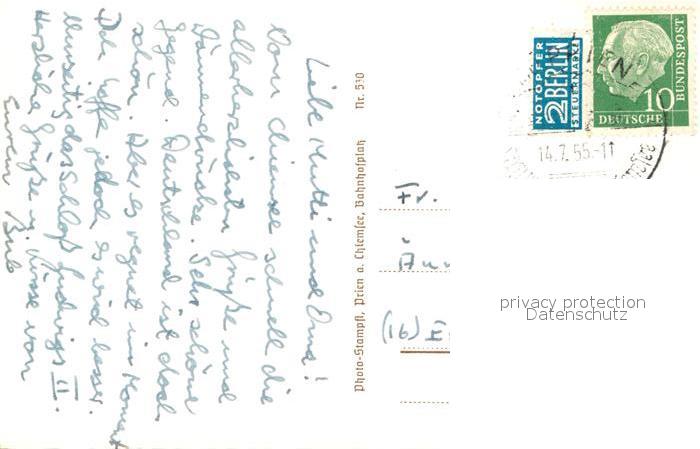 Liebe Mutti und Oma!
Vom Chiemsee schnell die
allerherzlichsten Grüße und
Daumendrücke. Sehr schöne
Gegend. Deutschland ist doch
schön. Aber es regnet im Moment
Ich hoffe jedoch es wird besser.
das Schloß Ludwigs II.
Herzliche Grüße u. Küsse von
Eurem
Photo-Stampfl, Prien a. Chiemsee, Bahnhofplatz Nr. 530
NOTOPFER
2 BERLIN
STEUERMARKE
DEUTSCHE
BUNDESPOST
10
14.7.55.-11
Fr.
(16)
privacy protection
Datenschutz